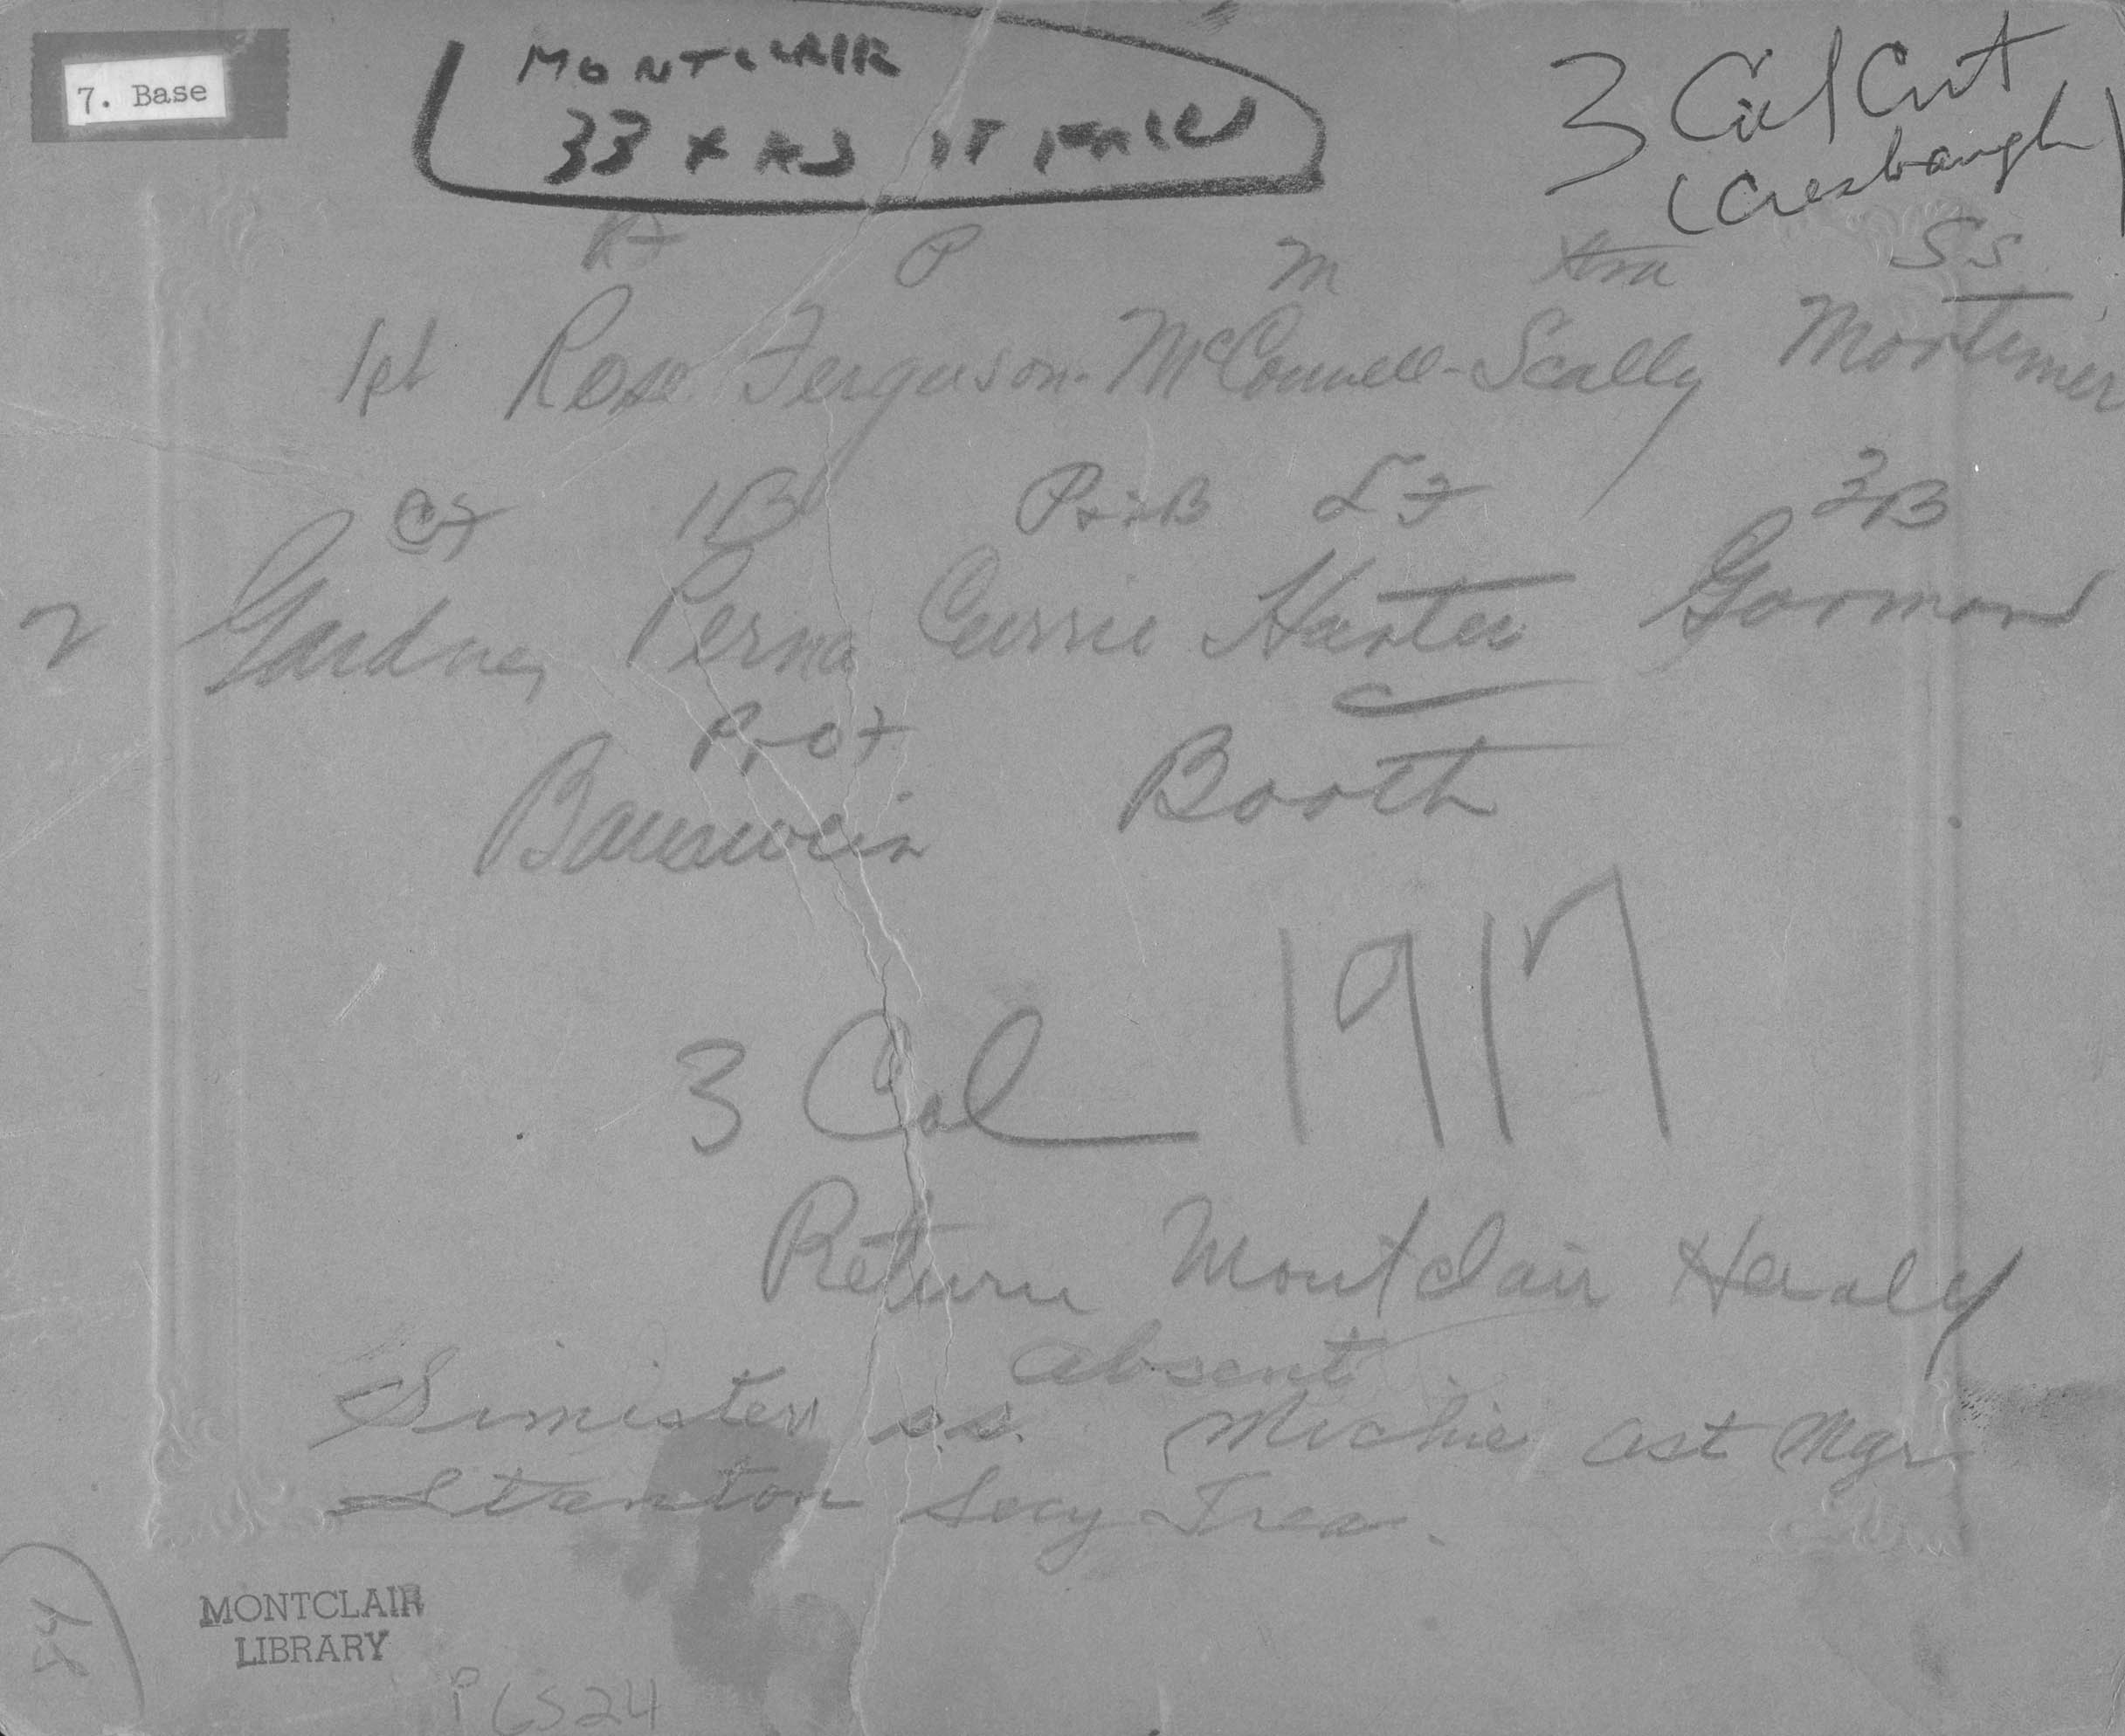 7. Base
MONTCLAIR
33 X AS IT FALLS
3 Col Cut
(Cresbaugh)
P M SS
1st Rose Ferguson - McConnell - Scally Mortimer
CF 1B P+2B LF 3B
2 Gardner Perna Currie Harter Gorman
P+CF
Bauerwein Booth
3 Col 1917
Return Montclair Healy
absent
Simister s.s. Michie, ast Mgr
Stanton Secy Trea.
84
MONTCLAIR
LIBRARY
P6524